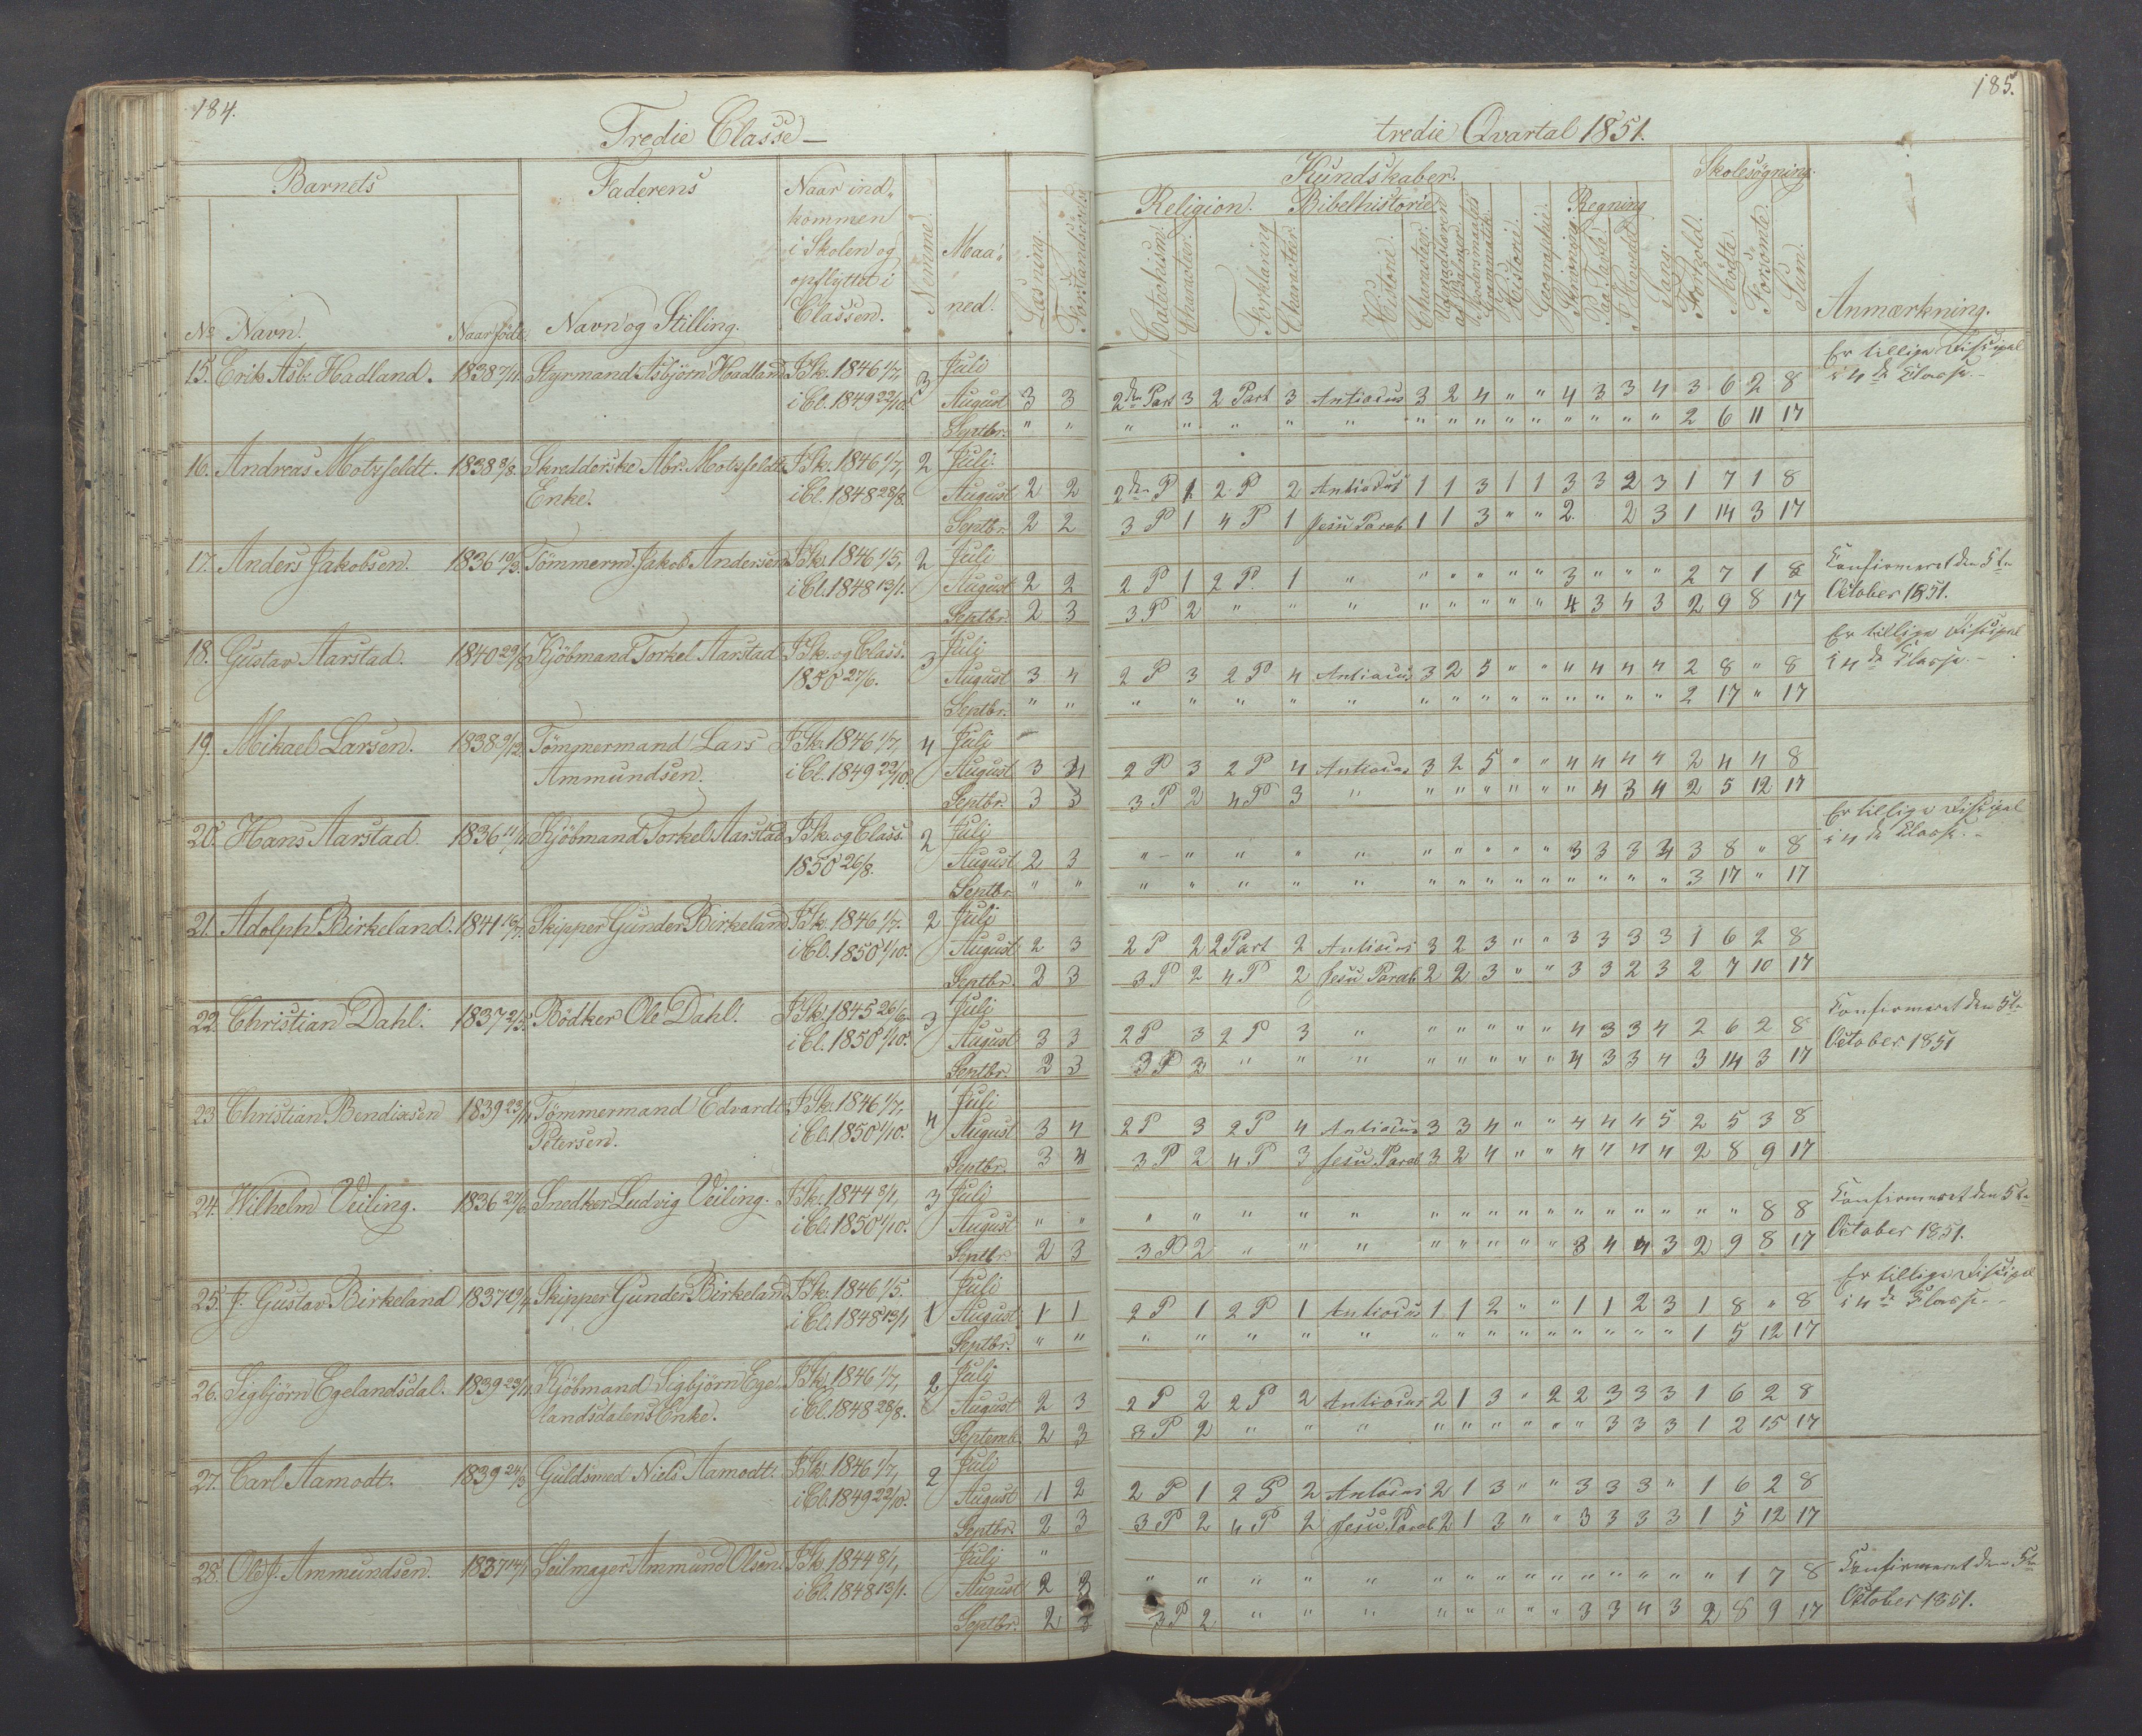 184.
Tredie Classe –
Barnets
Faderens
Naar ind-
kommen
i Skolen og
opflyttet i
Classen.
Nemme.
Maa-
ned.
Læsning.
Forstandsøvelse
No Navn.
Naar född.
Navn og Stilling.
15. Erik Asb. Hadland. 1838 7/11. Styrmand Asbjörn Hadland I Sk. 1846 1/7, 3 Juli
i Cl. 1849 22/10. August 3 3
Septbr. " "
16. Andreas Motzfeldt. 1838 3/8. Skredderske Abr. Motzfeldts I Sk. 1846 1/7, 2 Juli
Enke. i Cl. 1848 28/8. August 2 2
Septbr. 2 2
17. Anders Jakobsen. 1836 10/3. Tömmerm. Jakob Andersen I Sk. 1846 1/5, 2 Juli
i Cl. 1848 13/1. August 2 2
Septbr. 2 3
18. Gustav Aarstad. 1840 Kjöbmand Torkel Aarstad I Sk. og Class. 3 Juli
1850 27/6. August 3 4
Septbr. " "
19. Mikael Larsen. 1838 9/12. Tömmermand Lars I Sk. 1846 1/7, 4 Juli
Ammundsen. i Cl. 1849 22/10. August 3
Septbr. 3 3
20. Hans Aarstad. 1836 11/11 Kjöbmand Torkel Aarstad I Sk. og Class. 2 Juli
1850 26/8. August 2 3
Septbr. " "
21. Adolph Birkeland. 1841 16/7. Skipper Gunder Birkeland I Sk. 1846 1/7. 2 Juli
i Cl. 1850 1/10. August 2 3
Septbr. 2 3
22. Christian Dahl. 1837 2/3. Bödker Ole Dahl. I Sk. 1845 26/6 3 Juli
i Cl. 1850 1/10. August 3 3
Septbr. 3
23 Christian Bendixsen 1839 23/11 Tömmermand Edvardt I Sk. 1846 1/7, Juli
Petersen. i Cl. 1850 1/10. 4 August 3 4
Septbr. 3 4
24. Wilhelm Veiling. 1836 27/6. Snedker Ludvig Veiling. I Sk. 1844 8/1, 3 Juli
i Cl. 1850 1/10. August " "
Septbr. 2 3
25. J. Gustav Birkeland 1837 Skipper Gunder Birkeland I Sk. 1846 1/5. Juli
i Cl. 1848 13/1 1 August 1 1
Septbr. " "
26. Sigbjörn Egelandsdal. 1839 23/11. Kjöbmand Sigbjörn Ege- I Sk. 1846 1/7, 2 Juli
landsdalens Enke. i Cl. 1848 28/8. August 2 3
Septemb. 2 3
27. Carl Aamodt. 1839 24/3 Guldsmed Niels Aamodt. I Sk. 1846 1/7, 2 Juli
i Cl. 1849 22/10. August 1 2
Septbr. 2 3
28. Ole J. Ammundsen. 1837 14/1 Seilmager Ammund Olsen. I Sk. 1844 8/1, Juli "
i Cl. 1848 13/1. August 2
Septbr. 2
185.
tredie Qvartal 1851.
Kundskaber.
Skolesögning.
Religion. Bibelhistorie.
Regning
Catechism.
Character.
Forklaring
Character.
Historie.
Character.
Modersmaalets
Grammatik.
Historie.
Geographie.
Skrivning.
Paa Tavle.
I Hovedet.
Sang.
Forhold.
Mödte.
Forsömte.
Sum.
Anmærkning.
Er tillige Discipel
i 4de Classe. –
2den Part 3 2 Part 3 Antiocus 3 2 4 " " 4 3 3 4 3 6 2 8
" " " " " " " " " " " " " " 2 6 11 17
2den P 1 2 P 2 Antiocus 1 1 3 1 1 3 3 2 3 1 7 1 8
3 P 1 4 P 1 Jesu Parab. 1 1 3 " " 2. 2 3 1 14 3 17
Confirmeret den 5te
October 1851.
2 P 1 2 P. 1 " " " " " " 3 " " " 2 7 1 8
3 P 2 " " " " " " " " 4 3 4 3 2 9 8 17
Er tillige Discipel
i 4de Classe. –
2 P 3 2 P 4 Antiocus 3 2 5 " " " 4 4 4 2 8 " 8
" " " " " " " " " " " " " " 2 17 " 17
2 P 3 2 P 4 Antiocus 3 2 5 " " 4 4 4 4 2 4 4 8
3 P 2 4 P 3 " " " " " " " 4 3 4 2 5 12 17
Er tillige Discipel
i 4de Classe. –
" " " " " " " " " " 3 3 3 3 8 " 8
" " " " " " " " " " " " " " 3 17 " 17
2 P 2 2 Part 2 Antiocus 3 2 3 " " 3 3 3 3 1 6 2 8
3 P 2 4 P 2 Jesu Parab. 2 2 3 " " 3 3 2 3 2 7 10 17
Confirmeret den 5te
October 1851
2 P 3 2 P 3 " " " " " " 4 3 3 4 2 6 2 8
3 P 2 " " " " " " " " 4 3 3 4 3 14 3 17
2 P 3 2 P 4 Antiocus 3 3 4 " " 4 4 4 5 2 5 3 8
3 P 2 4 P 3 Jesu Parab 3 2 4 " " 4 4 4 4 2 8 9 17
Confirmeret den 5te
October 1851.
" " " " " " " " " " " " " " " " 8 8
3 P 2 " " " " " " " " 3 4 4 3 2 9 8 17
Er tillige Discipel
i 4de Classe. –
2 P 1 2 P 1 Antiocus 1 1 2 " " 1 1 2 3 1 8 " 8
" " " " " " " " " " " " " " 1 5 12 17
2 P 2 2 P 2 Antiocus 2 1 3 " 2 2 3 3 3 1 6 2 8
3 P 2 " " " " " " " " " 3 3 3 1 2 15 17
2 P 1 2 P 2 Antiocus 2 1 3 " " 3 3 3 " 1 6 2 8
3 P 2 4 P 2 Jesu Parab. 2 1 3 " " 3 3 3 3 1 5 12 17
Confirmeret den 5te
October 1851.
" " " " " " " " " " " " " " " 1 7 8
3 P 2 " " " " " " " " 3 3 4 3 2 8 9 17